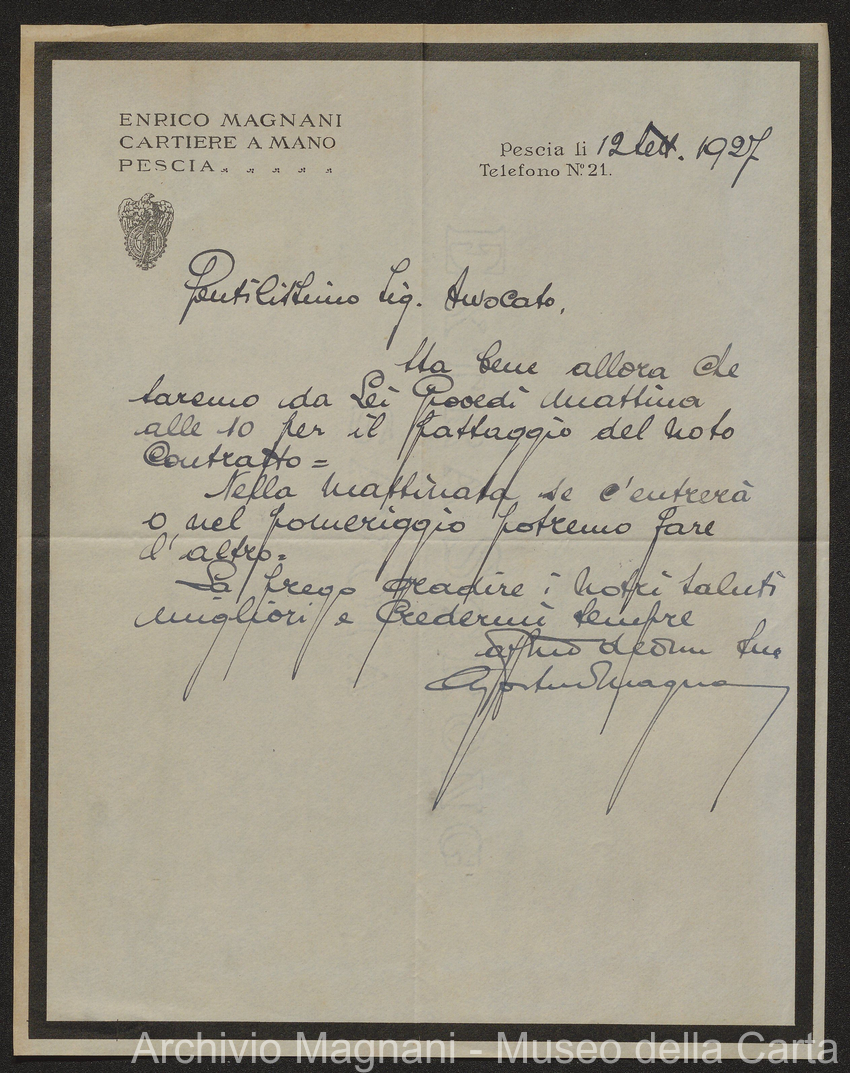 ENRICO MAGNANI
CARTIERE A MANO
PESCIA
Pescia li 12 Sett. 1927
Telefono N.º 21.
Gentilissimo Sig. Avvocato,
Sta bene allora che
saremo da Lei Giovedi mattina
alle 10 per il passaggio del noto
Contratto =
Nella mattinata se c'entrerà
o nel pomeriggio potremo fare
l'altro =
La prego gradire i nostri saluti
migliori e credermi sempre
Magnani
Archivio Magnani - Museo della Carta